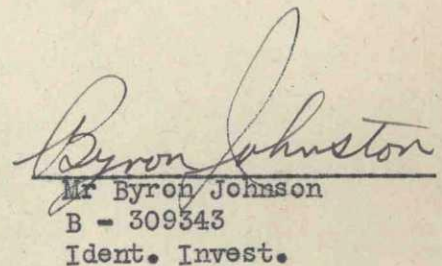 Byron Johnston
Mr Byron Johnson
B - 309343
Ident. Invest.